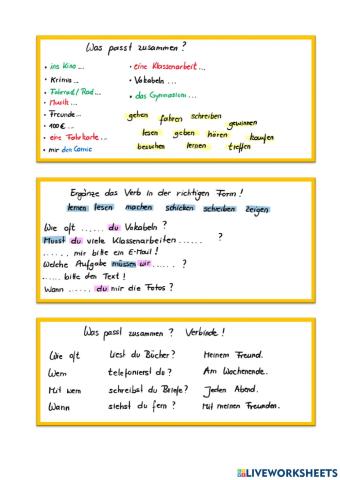 Was passt zusammen ?
• ins Kino ...
• eine Klassenarbeit ...
• Krimis ...
• Vokabeln ...
• Fahrrad / Rad ...
• das Gymnasium ...
• Musik ...
• Freunde ...
• 100 € ...
• eine Fahrkarte ...
• mir den Comic
gehen fahren schreiben gewinnen
lesen geben hören kaufen
besuchen lernen treffen
Ergänze das Verb in der richtigen Form !
lernen lesen machen schicken schreiben zeigen
Wie oft ...... du Vokabeln ?
Musst du viele Klassenarbeiten ...... ?
...... mir bitte ein E-Mail !
Welche Aufgabe müssen wir ...... ?
..... bitte den Text !
Wann ...... du mir die Fotos ?
Was passt zusammen ? Verbinde !
Wie oft liest du Bücher ? Meinem Freund.
Wem telefonierst du ? Am Wochenende.
Mit wem schreibst du Briefe ? Jeden Abend.
Wann siehst du fern ? Mit meinen Freunden.
LIVEWORKSHEETS